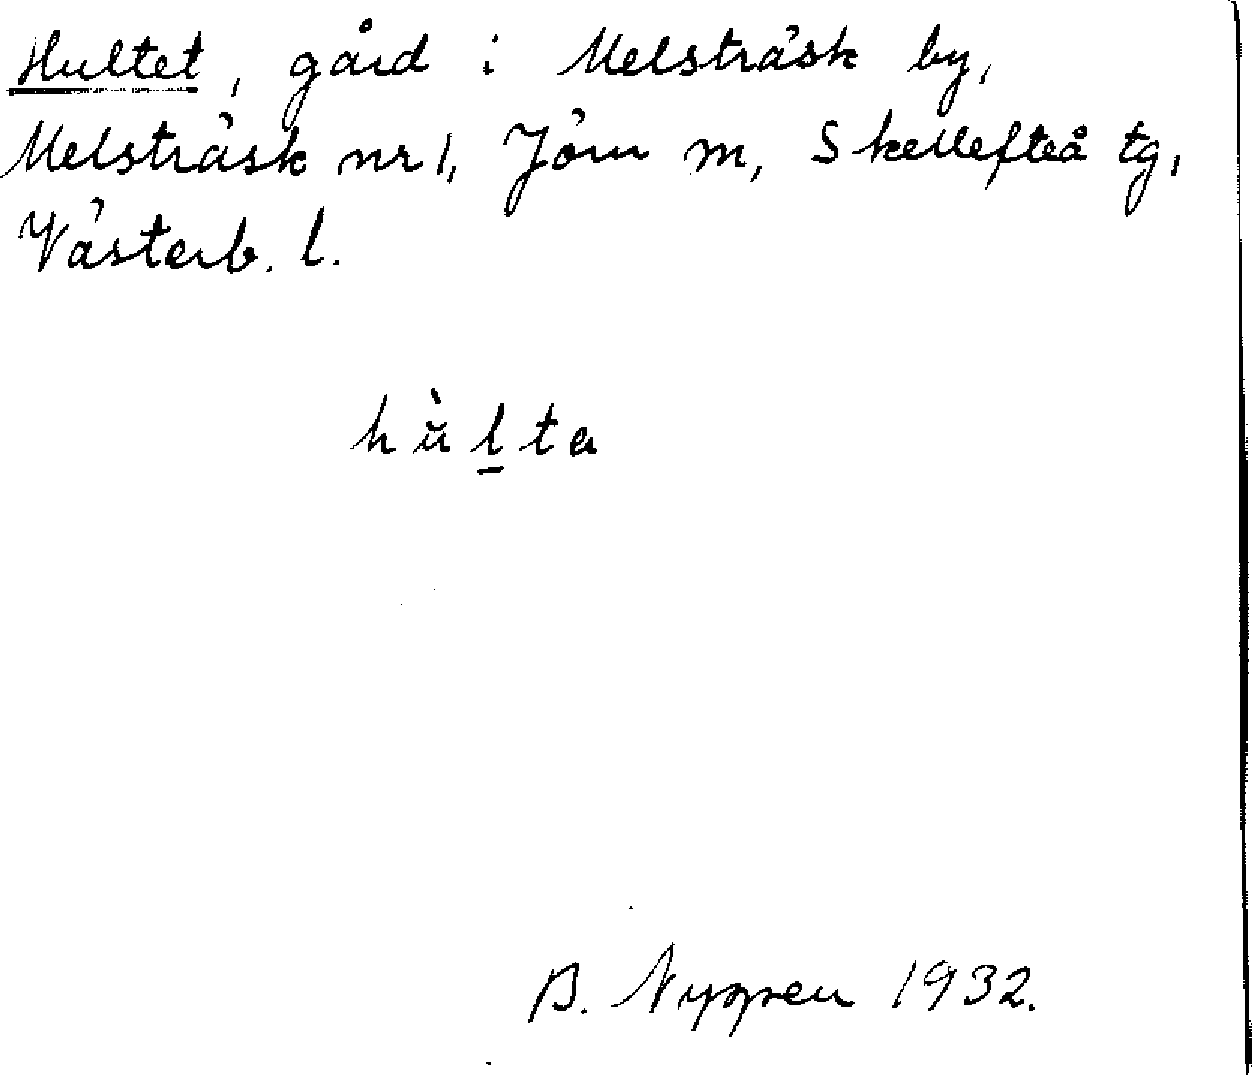 Hultet, gård i Melsträsk by,
Melsträsk nr 1, Jörn m, Skellefteå tg,
Västerb. l.
hùḻta
B. Nygren 1932.